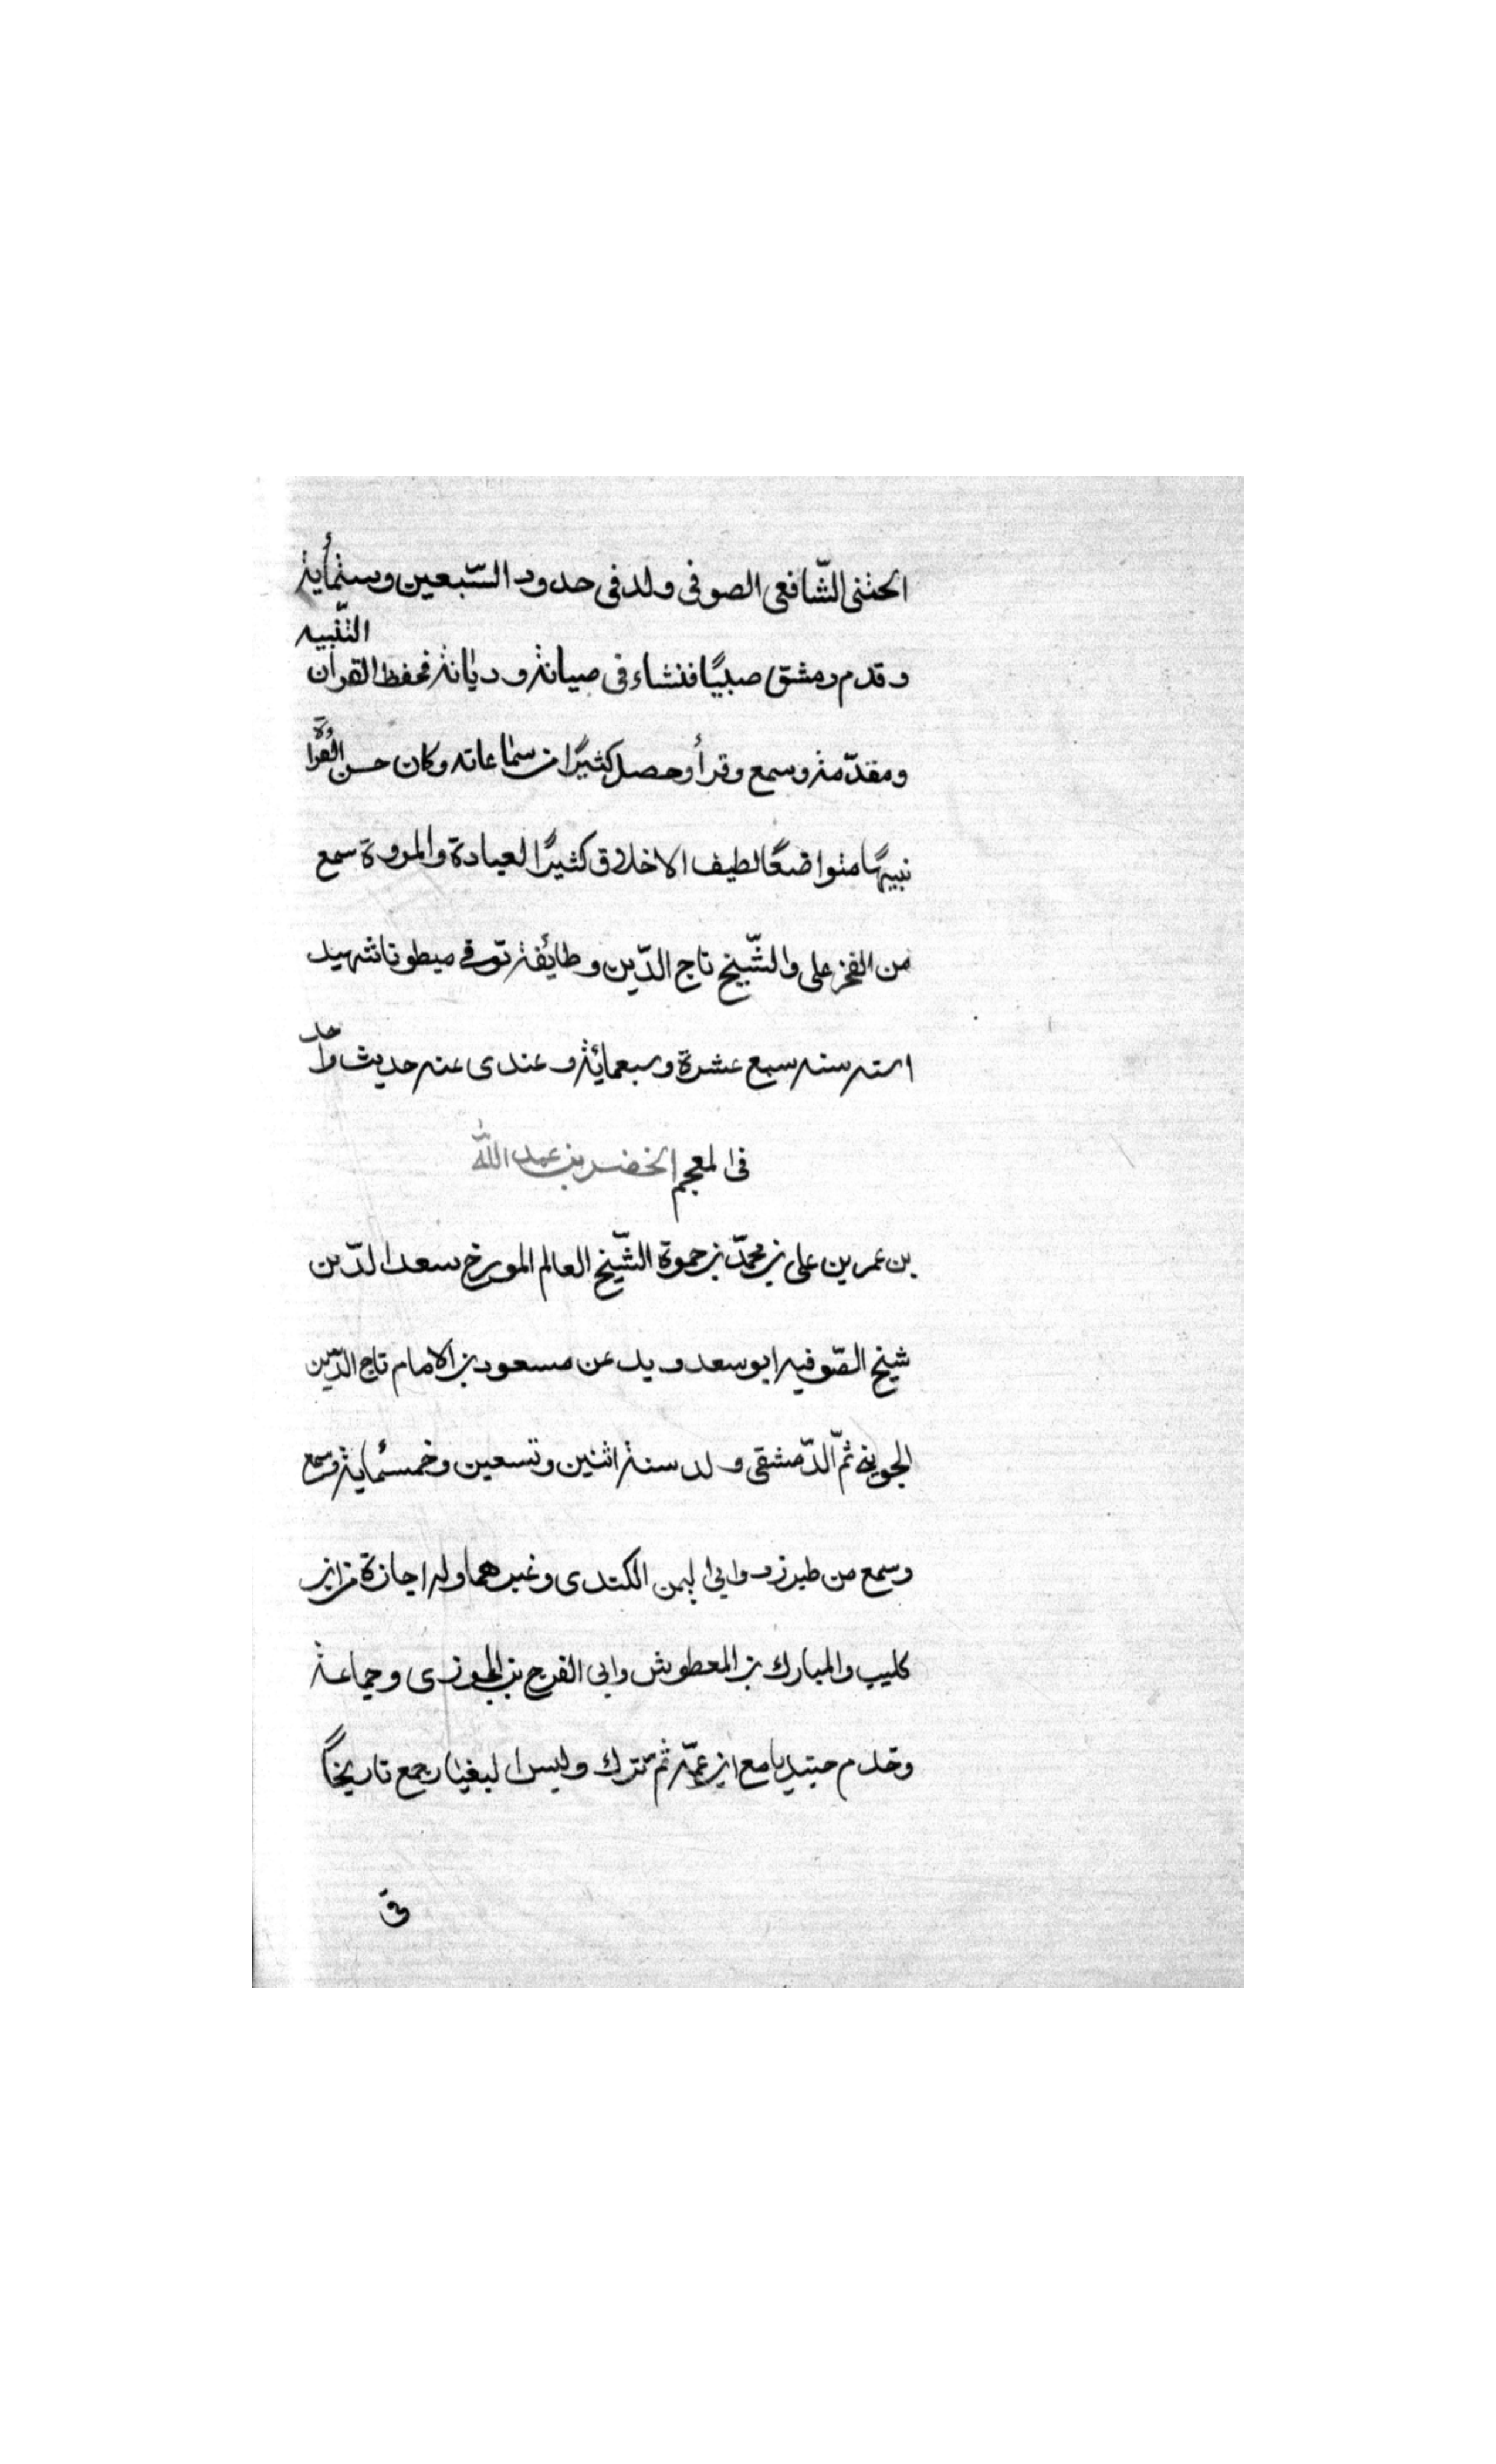 الحتنى الشّافعى الصوفى ولد فى حدود السّبعين وستمأية
وقدم دمشق صبيًا فنشاء فى صيانة وديانة فحفظ القران التّنبيه
ومقدّمة وسمع وقرأ وحصل كثيرًا من سماعاته وكان حسن القراءة
نبيهًا متواضعًا لطيف الاخلاق كثيرًا لعبادة والمروة سمع
من الفخر على والشّيخ تاج الدّين وطائفة توفى مبطونا شهيد
سنه سبع عشرة وسبعمائة وعندى عنه حديث واحد
فى المعجم الخضر بن عبد الله
بن عمر بن على بن محمّد بن حموة الشّيخ العالم المورخ سعد الدّين
شيخ الصّوفيه ابو سعد ويد عن مسعود بن الامام تاج الدّين
الجوينى ثمّ الدّمشقى ولد سنة اثنين وتسعين وخمسمٔاية وسمع
وسمع من طبرزد وابى اليمن الكندى وغيرهما وله اجازة من ابن
كليب والمبارك بن المعطوش وابى الفرج بن الجوزى وجماعة
وخدم جنديا مع ابن عمّه ثم ترك ولبس البغيار جمع تاريخًا
فى